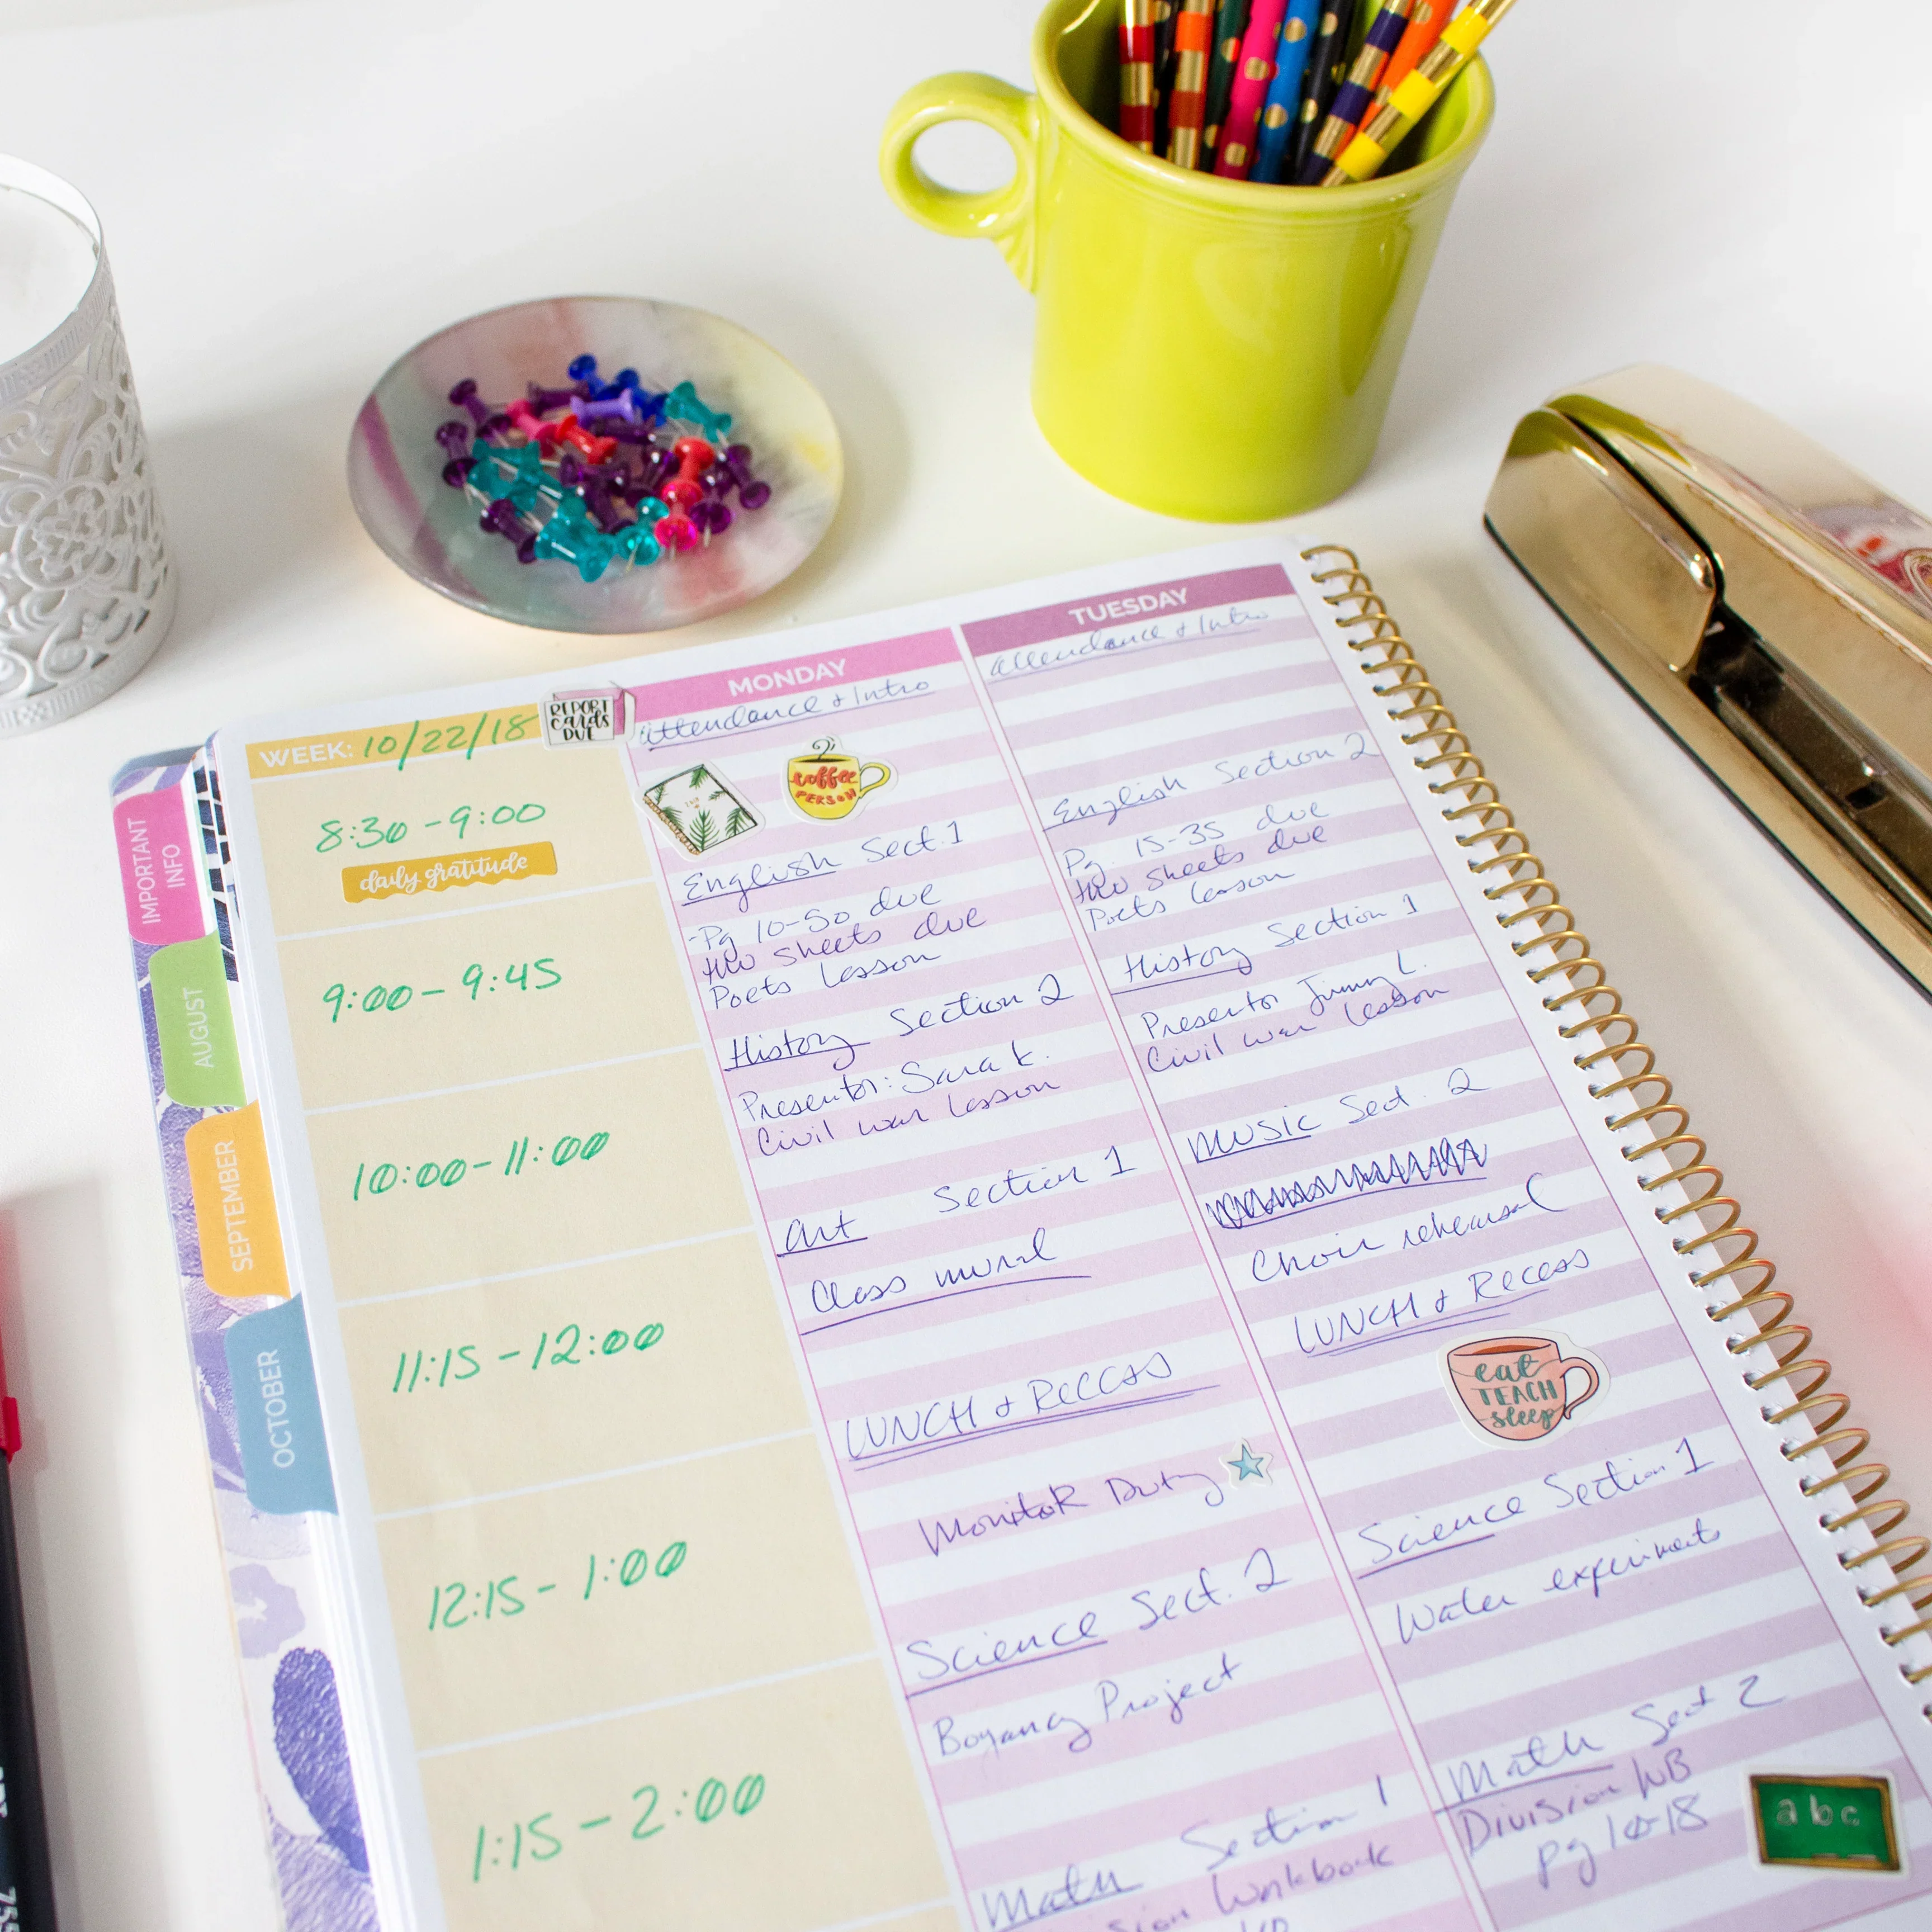 IMPORTANT
INFO
AUGUST
SEPTEMBER
OCTOBER
WEEK: 10/22/18
REPORT
cards
DUE
8:30 - 9:00
daily gratitude
9:00 - 9:45
10:00 - 11:00
11:15 - 12:00
12:15 - 1:00
1:15 - 2:00
MONDAY
Attendance & Intro
coffee
PERSON
English Sect. 1
-Pg 10-50 due
two sheets due
Poets Lesson
History Section 2
Presentor: Sara K.
Civil war Lesson
Art Section 1
Class mural
LUNCH & RECESS
Monitor Duty
Science Sect. 2
Boyancy Project
Math Section 1
Workbook
TUESDAY
Attendance & Intro
English Section 2
Pg. 15-35 due
two sheets due
Poets Lesson
History Section 1
Presentor Jimmy L.
Civil war Lesson
MUSIC Sect. 2
Choir rehearsal
LUNCH & RECESS
eat
TEACH
sleep
Science Section 1
Water experiments
Math Sect 2
Division WB
pg 10-18
abc